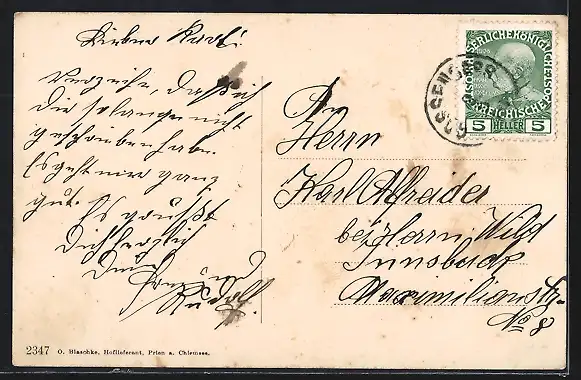 Lieber Karl!
Verzeihe, daß ich
Dir so lange nicht
geschrieben habe.
Es geht mir ganz
gut. Es grüßt
Dich herzlich
Dein Freund
Rudolf.
An
Herrn
Karl Alreider
bei Herrn Wild
Innsbruck
Maximilianstr.
No 8
KAISERLICHE KÖNIGLICHE
ÖSTERREICHISCHE
5 HELLER 5
2347 O. Blaschke, Hoflieferant, Prien a. Chiemsee.